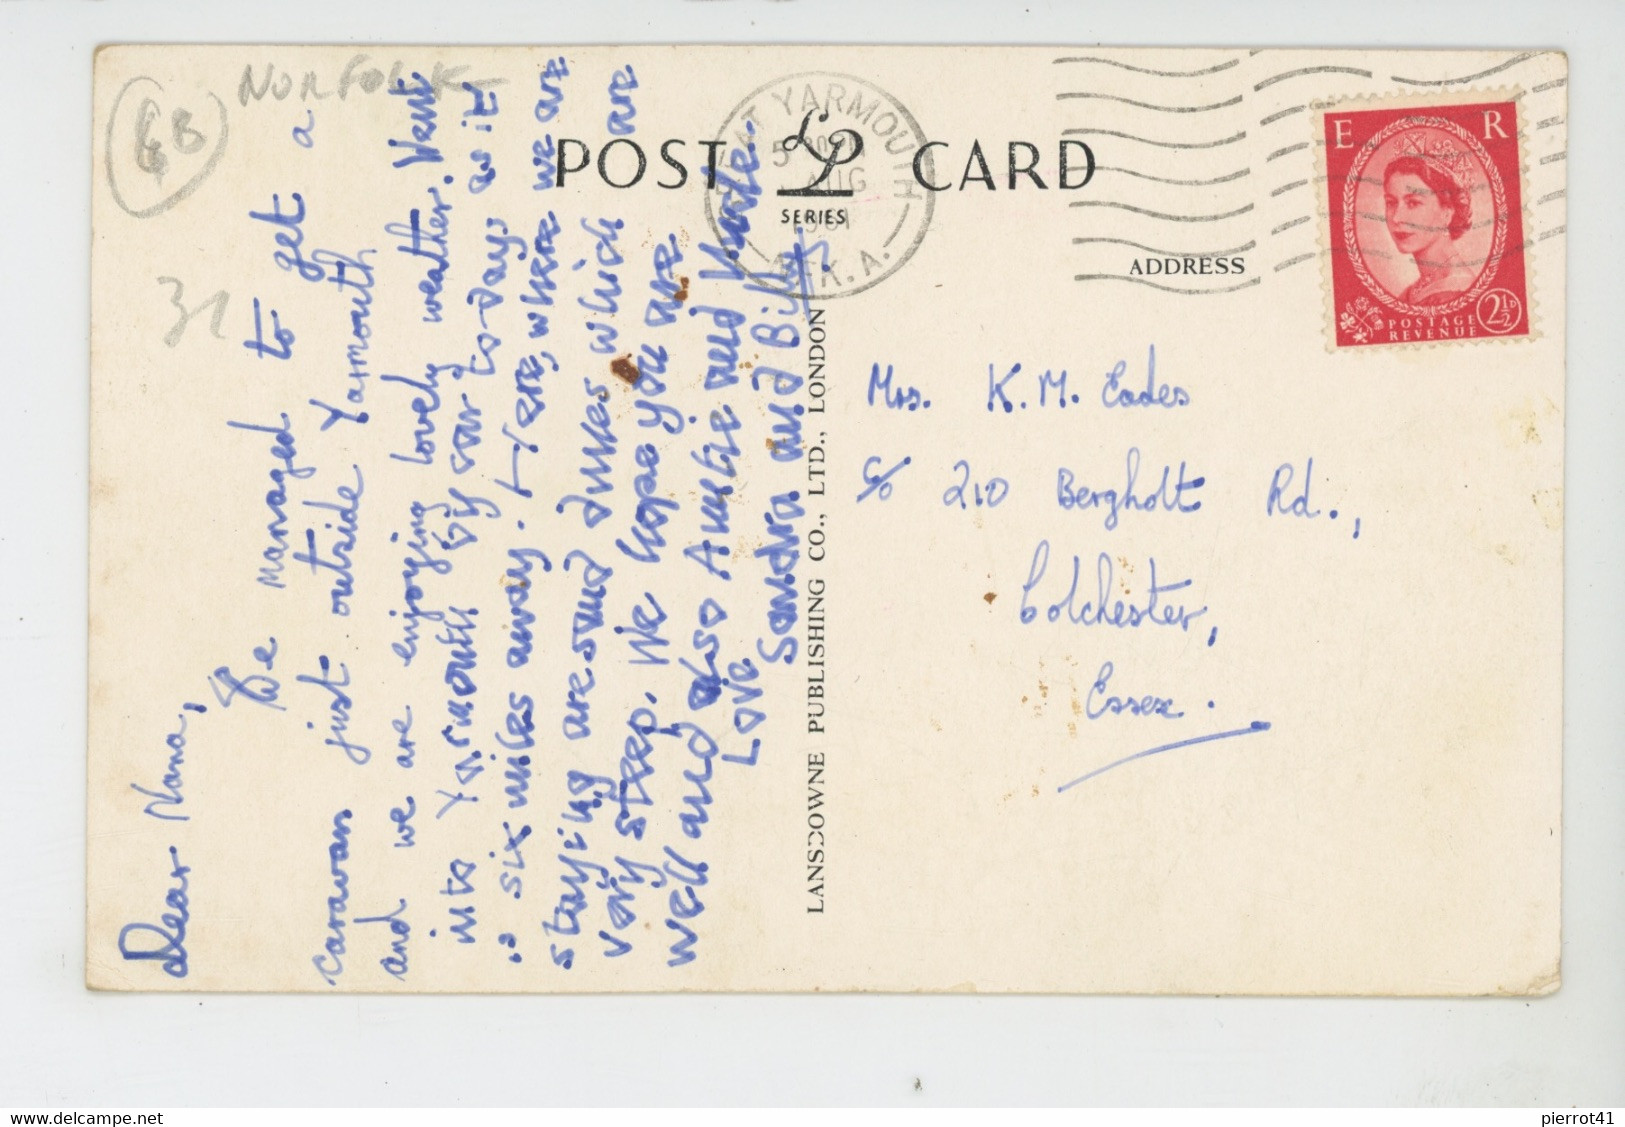 GB
NORFOLK
31
Dear Nana,
We managed to get a
caravan just outside Yarmouth
and we are enjoying lovely weather. Went
into Yarmouth by car to-day as it
is six miles away. Here, where we are
staying are sand dunes which are
very steep. We hope you are
well and also Auntie and
Love
Sandra and Billy.
POST CARD
LP
SERIES
GREAT YARMOUTH
5
AUG
1961
NFK.A.
E R
POSTAGE
REVENUE
2½D
ADDRESS
Mrs. K.M. Eades
c/o 210 Bergholt Rd.,
Colchester,
Essex.
LANSDOWNE PUBLISHING CO., LTD., LONDON
pierrot41